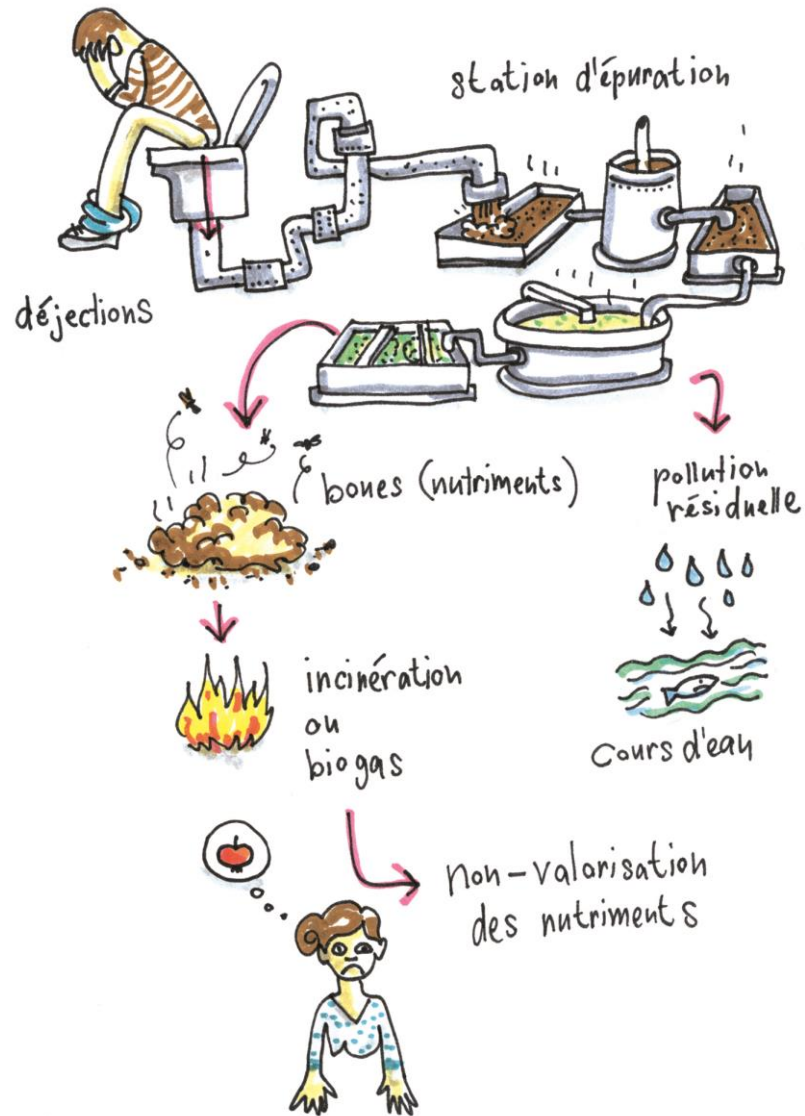 station d'épuration
déjections
boues (nutriments)
pollution
résiduelle
incinération
ou
biogas
cours d'eau
non-valorisation
des nutriments